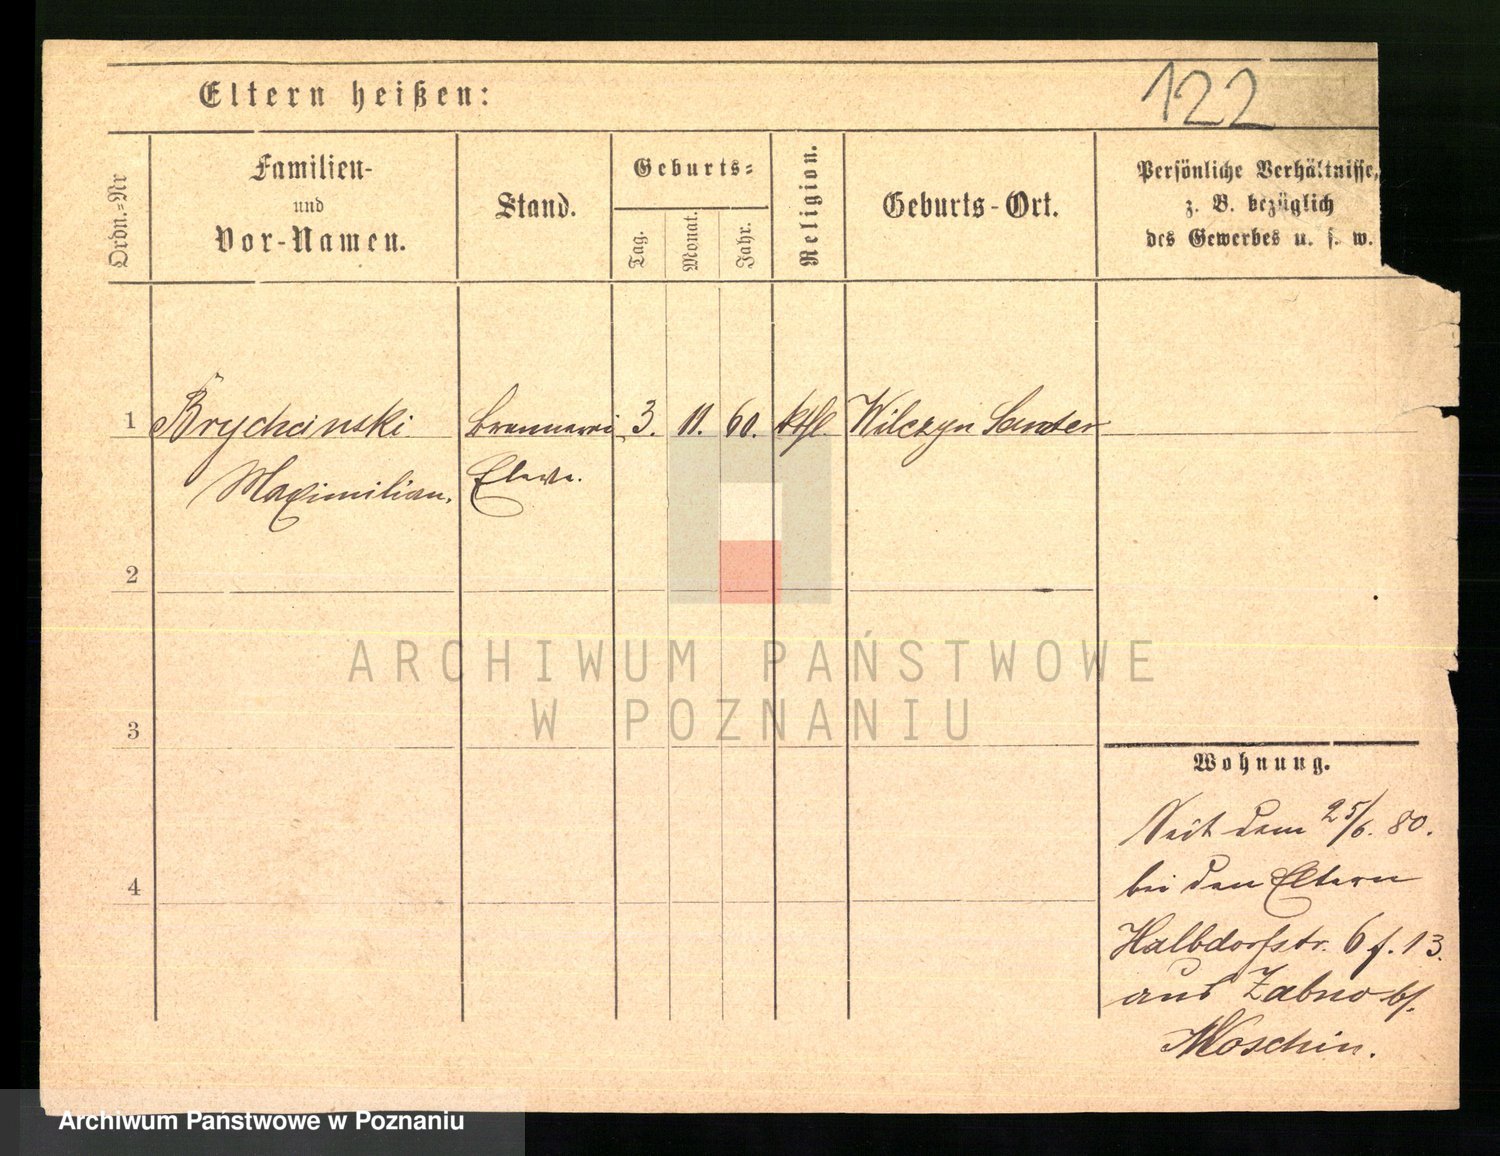 122
Eltern heißen:
Ordn.-Nr
Familien-
und
Vor-Namen.
Stand.
Geburts-
Tag.
Monat.
Jahr.
Religion.
Geburts-Ort.
Persönliche Verhältnisse,
z. B. bezüglich
des Gewerbes u. s. w.
1 Brychcinski Brennerei 3. 11. 60. kthl. Wilczyn Samter
Maximilian. Eleve.
2
3
4
Wohnung.
Seit dem 25/6. 80.
bei den Eltern
Halbdorfstr. 6 f. 13.
aus Zabno b/.
Moschin.
ARCHIWUM PAŃSTWOWE
W POZNANIU
Archiwum Państwowe w Poznaniu